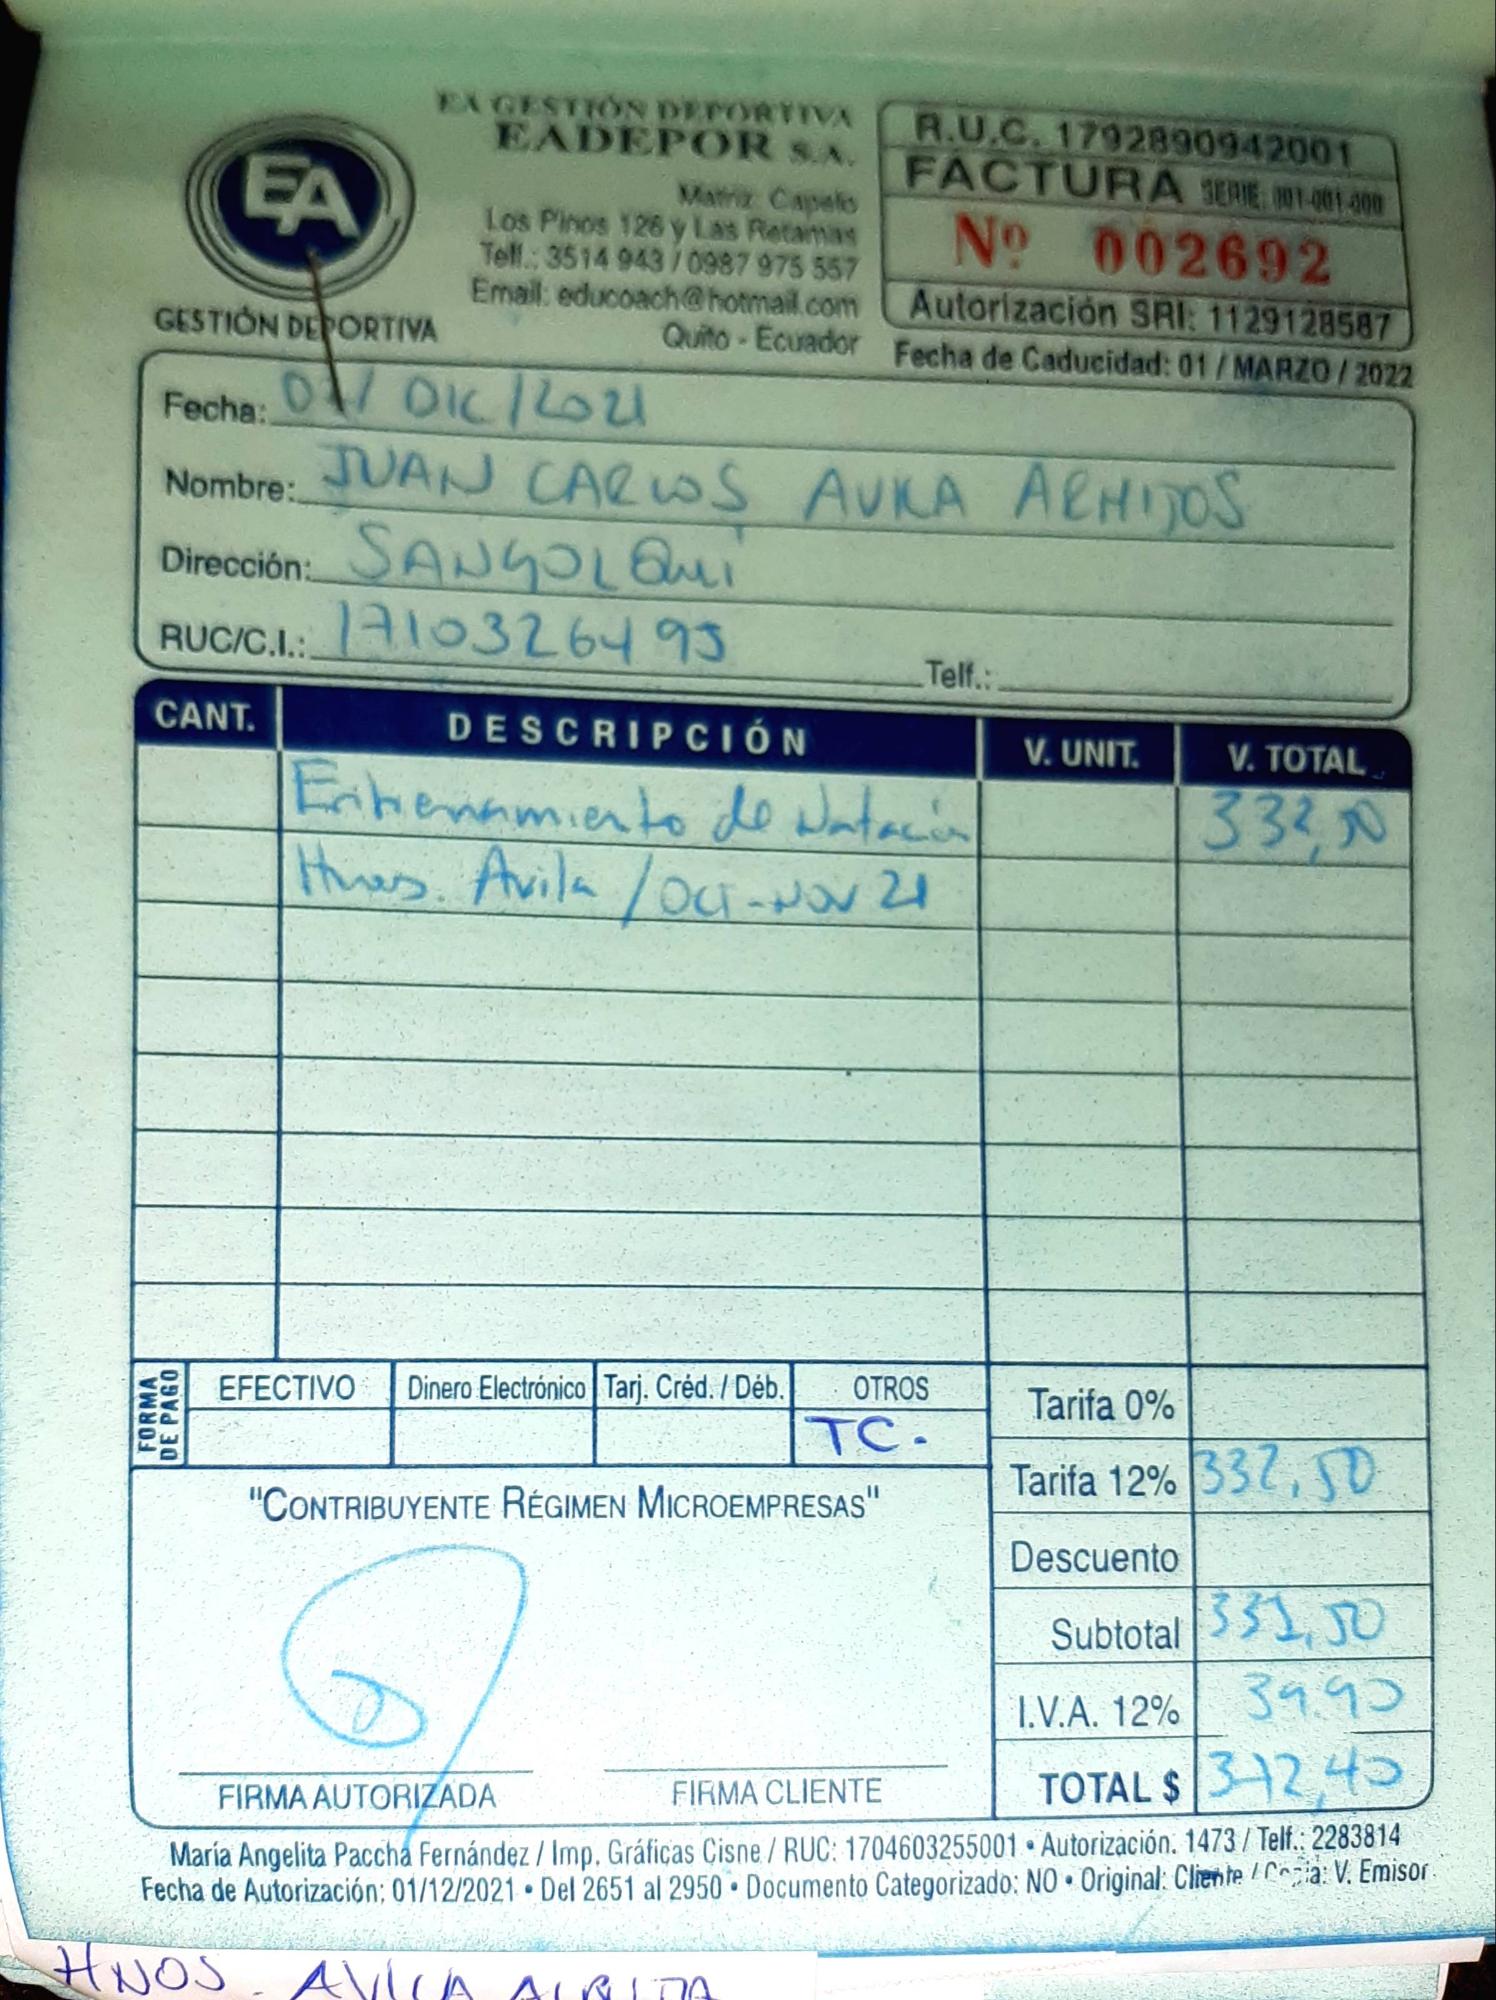 EA GESTIÓN DEPORTIVA
EADEPOR S.A.
Matriz: Capelo
Los Pinos 126 y Las Retamas
Telf.: 3514 943 / 0987 975 557
Email: educoach@hotmail.com
Quito - Ecuador
EA
GESTIÓN DEPORTIVA
R.U.C. 1792890942001
FACTURA SERIE: 001-001-000
Nº 002692
Autorización SRI: 1129128587
Fecha de Caducidad: 01 / MARZO / 2022
Fecha: 07/ DIC /2021
Nombre: JUAN CARLOS AVILA ARMIJOS
Dirección: SANGOLQUÍ
RUC/C.I.: 1710326495 Telf.:
CANT. DESCRIPCIÓN V. UNIT. V. TOTAL
Entrenamiento de Natación 332,50
Hnos. Avila / OCT-NOV 21
FORMA DE PAGO EFECTIVO Dinero Electrónico Tarj. Créd. / Déb. OTROS
TC.
Tarifa 0%
Tarifa 12% 332,50
Descuento
Subtotal 332,50
I.V.A. 12% 39.90
TOTAL $ 372,40
"CONTRIBUYENTE RÉGIMEN MICROEMPRESAS"
FIRMA AUTORIZADA FIRMA CLIENTE
María Angelita Paccha Fernández / Imp. Gráficas Cisne / RUC: 1704603255001 • Autorización. 1473 / Telf.: 2283814
Fecha de Autorización: 01/12/2021 • Del 2651 al 2950 • Documento Categorizado: NO • Original: Cliente / Copia: V. Emisor
HNOS. AVILA